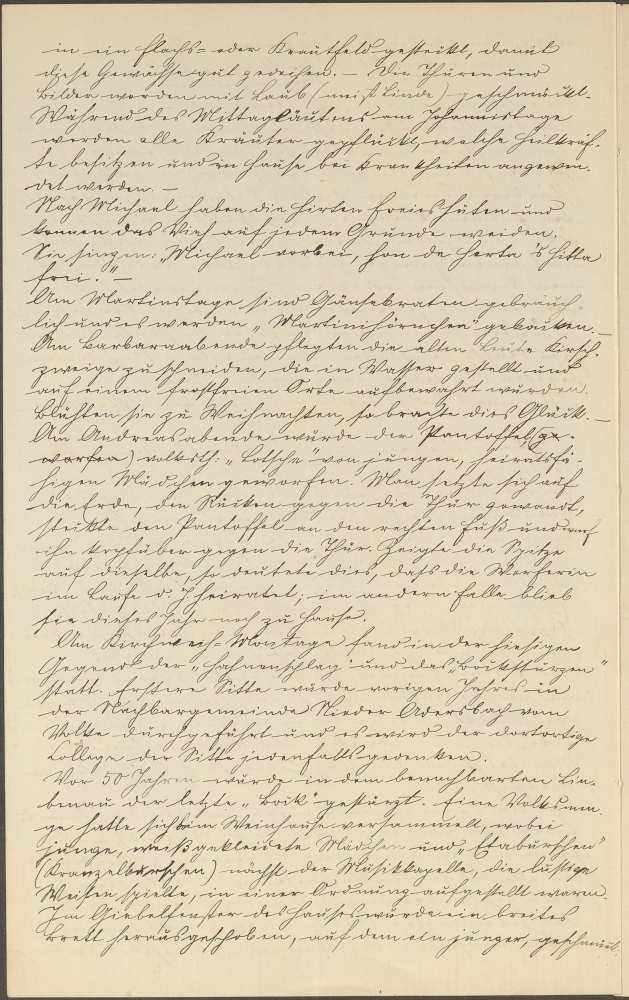 in ein Flachs- oder Krautfeld gesteckt, damit
diese Gewächse gut gedeihen. — Die Thüren und
Bilder werden mit Laub (meist Linde) geschmückt.
Während des Mittagläutens am Johannistage
werden alle Kräuter gepflückt, welche Heilkräf-
te besitzen und im Hause bei Krankheiten angewen-
det werden. —
Nach Michael haben die Hirten freies Hüten und
können das Vieh auf jedem Grunde weiden.
Sie singen: „Michael vorbei, hon de Herta 's Hitta
frei." —
Am Martinstage sind Gänsebraten gebräuch-
lich und es werden „Martinihörnchen" gebacken. —
Am Barbaraabende pflegten die alten Leute Kirsch-
zweige zu schneiden, die in Wasser gestellt und
auf einem frostfreien Orte aufbewahrt wurden.
Blühten sie zu Weihnachten, so brachte dies Glück. —
Am Andreasabende wurde der Pantoffel (ge-
worfen) volksth: „Lotsche" von jungen, heiratsfä-
higen Mädchen geworfen. Man setzte sich auf
die Erde, den Rücken gegen die Thür gewandt,
steckte den Pantoffel an den rechten Fuß und warf
ihn kopfüber gegen die Thür. Zeigte die Spitze
auf dieselbe, so deutete dies, dass die Werferin
im Laufe d. J. heiratet; im andern Falle blieb
sie dieses Jahr noch zu Hause.
Am Kirchweih-Montage fand in der hiesigen
Gegend der „Hahnenschlag" und das „Bockstürzen"
statt. Erstere Sitte wurde vorigen Jahres in
der Nachbargemeinde Nieder Adersbach vom
Volke durchgeführt und es wird der dortortige
College der Sitte jedenfalls gedenken.
Vor 50 Jahren wurde in dem benachbarten Lin-
benau der letzte „Bock" gestürzt. Eine Volksmen-
ge hatte sich beim Weinhause versammelt, wobei
junge, weiß gekleidete Mädchen und „Etaburschen"
(Kranzelburschen) nächst der Musikkapelle, die lustige
Weisen spielte, in einer Ordnung aufgestellt waren.
Im Giebelfenster des Hauses wurde ein breites
Brett herausgeschoben, auf dem ein junger, geschmück-